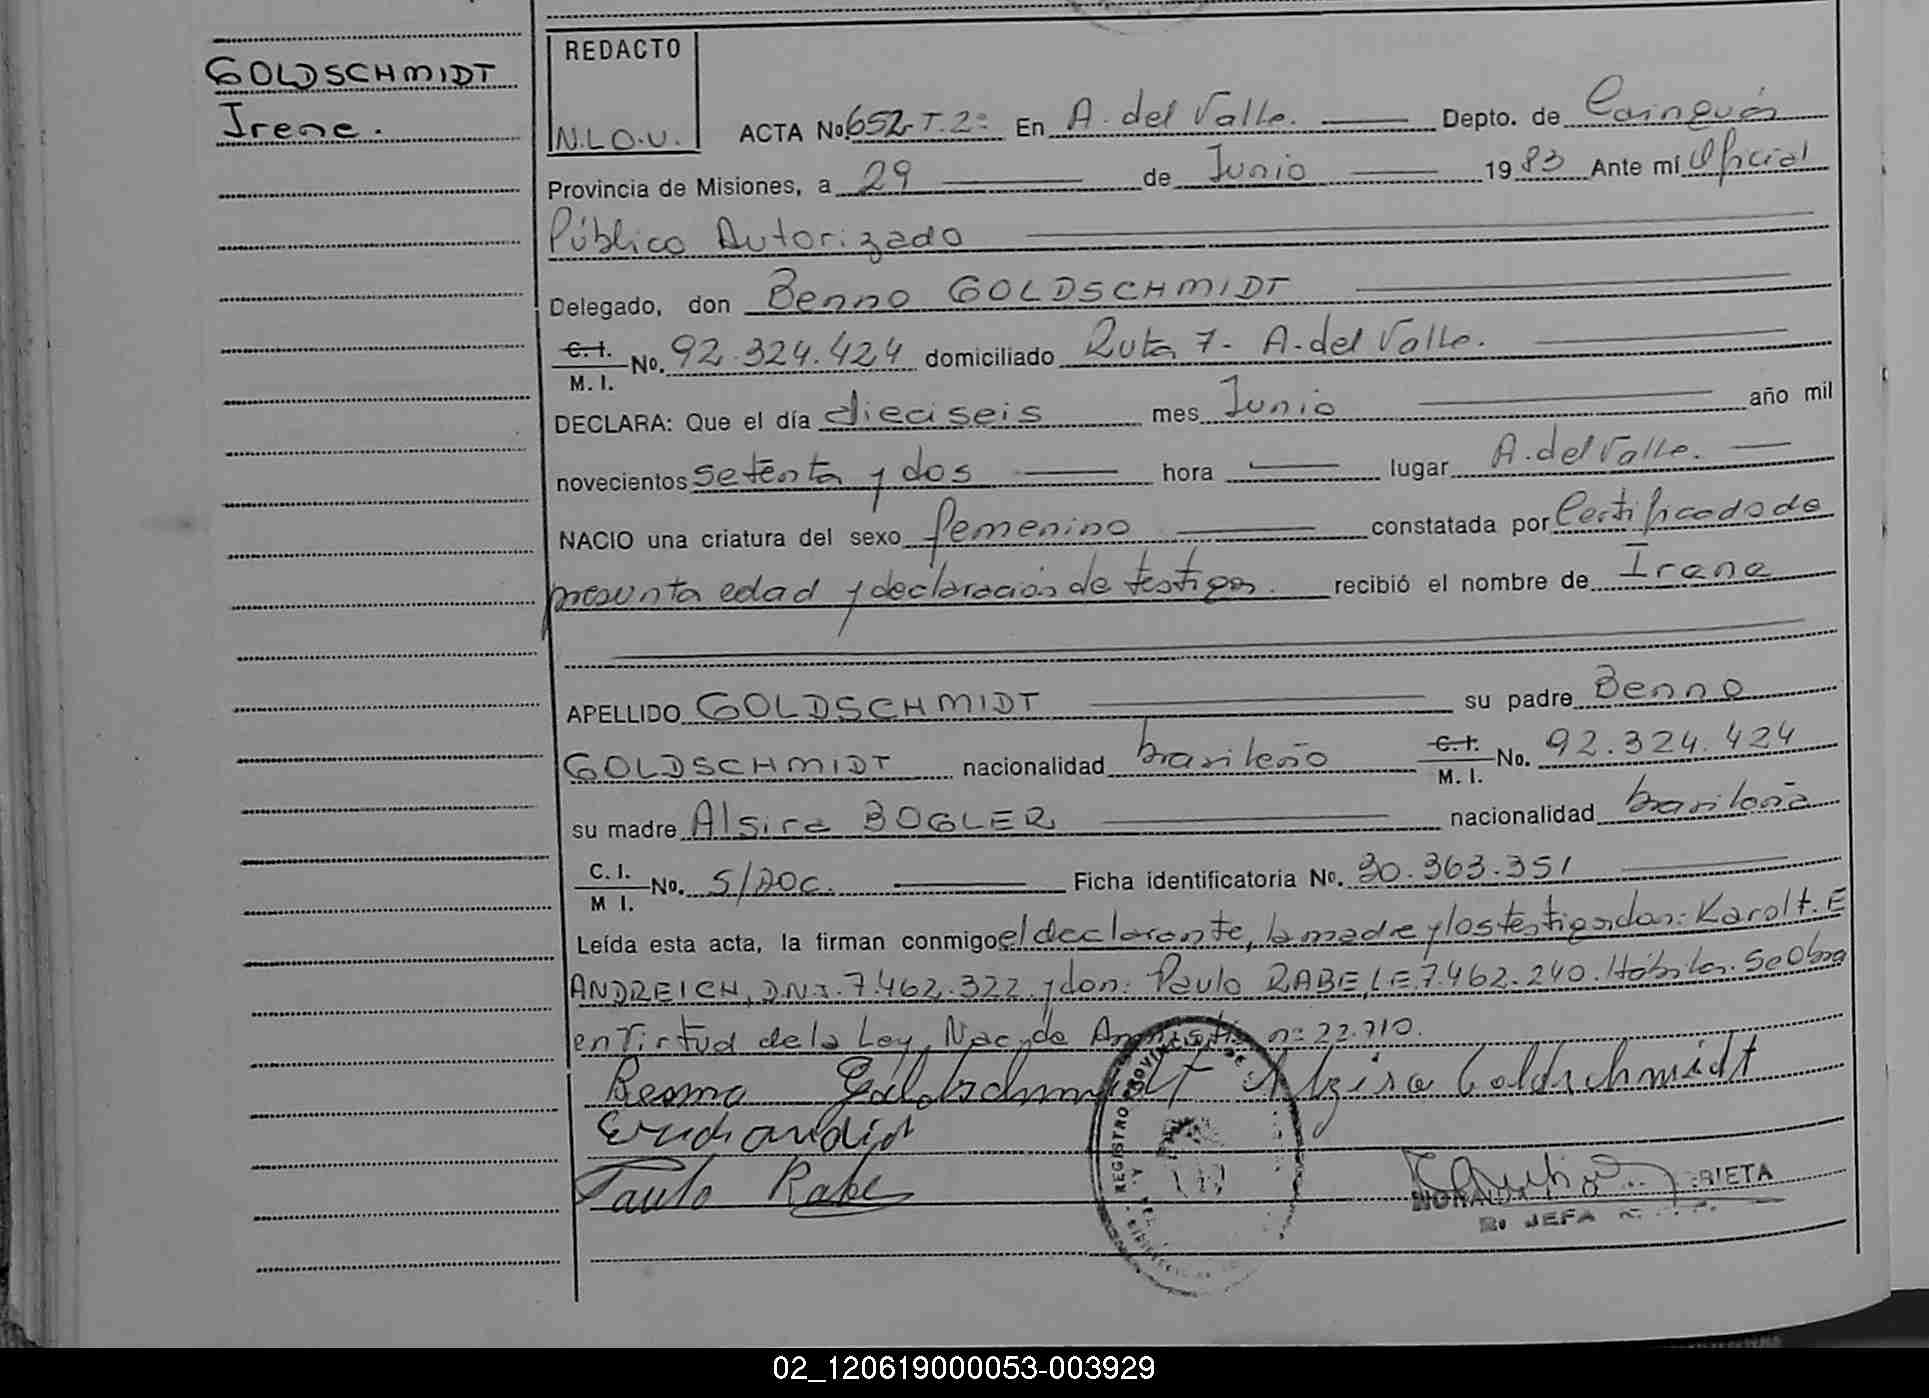 GOLDSCHMIDT
Irene.
REDACTO
N.L.O.V.
ACTA No. 652-T.2º En A. del Valle. Depto. de Cainguás
Provincia de Misiones, a 29 de Junio 1983 Ante mí Oficial
Público Autorizado
Delegado, don Benno GOLDSCHMIDT
C.I. M.I. No. 92.324.424 domiciliado Ruta 7- A. del Valle.
DECLARA: Que el día dieciseis mes Junio año mil
novecientos setenta y dos hora lugar A. del Valle.
NACIO una criatura del sexo femenino constatada por Certificado de
presunta edad y declaración de testigos. recibió el nombre de Irene
APELLIDO GOLDSCHMIDT su padre Benno
GOLDSCHMIDT nacionalidad brasileño C.I. M.I. No. 92.324.424
su madre Alsira BOGLER nacionalidad brasileña
C.I. M I. No. S/DOC. Ficha identificatoria No. 30.363.351
Leída esta acta, la firman conmigo el declarante, la madre y los testigos, don: Karolt. E
ANDREICH, D.N.I. 7.462.322 y don: Paulo RABE, L.E. 7.462.240. Hábiles. Se Obra
en Virtud de la Ley Nac. de Amnistía nº 22.710.
Benno Goldschmidt Alzira Goldschmidt
Paulo Rabe
REGISTRO PROVINCIAL DE
RIETA
JEFA
02_120619000053-003929